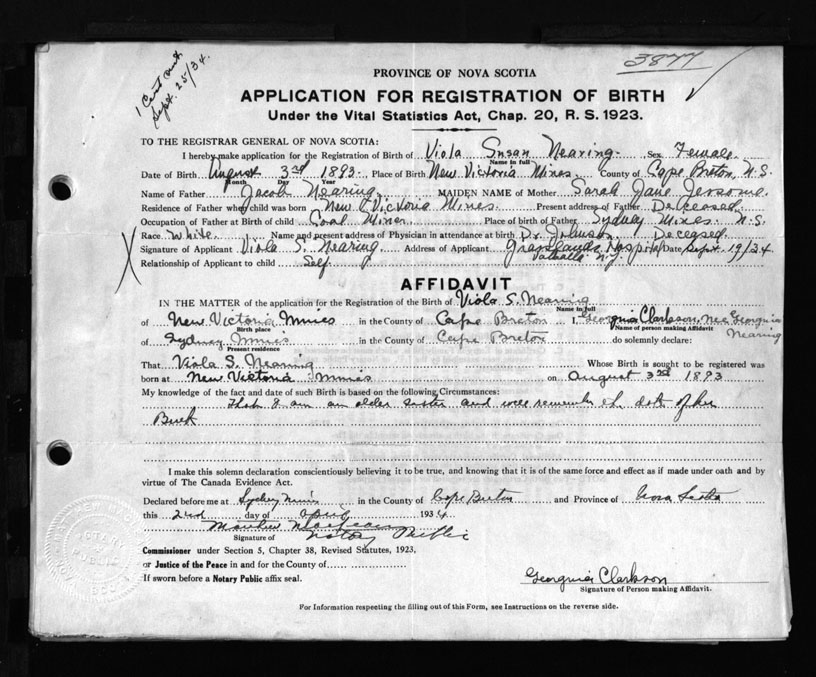 1 Cert sent
Sept. 25/34.
3877
PROVINCE OF NOVA SCOTIA
APPLICATION FOR REGISTRATION OF BIRTH
Under the Vital Statistics Act, Chap. 20, R. S. 1923.
TO THE REGISTRAR GENERAL OF NOVA SCOTIA:
I hereby make application for the Registration of Birth of Viola Susan Nearing. Sex Female.
Name in full
Date of Birth August 3rd 1893. Place of Birth New Victoria Mines. County of Cape Breton, N.S.
Month Day Year
Name of Father Jacob Nearing. MAIDEN NAME of Mother Sarah Jane Jessome.
Residence of Father when child was born New Victoria Mines. Present address of Father Deceased.
Occupation of Father at Birth of child Coal Miner Place of birth of Father Sydney Mines. N.S.
Race White. Name and present address of Physician in attendance at birth Dr. Johnson. Deceased.
Signature of Applicant Viola S. Nearing Address of Applicant Grasslands Hospital Date Sept. 19/34
Valhalla N.Y.
Relationship of Applicant to child Self.
AFFIDAVIT
IN THE MATTER of the application for the Registration of the Birth of Viola S. Nearing
Name in full
of New Victoria Mines in the County of Cape Breton I, Georgina Clarkson, nee Georgina
Nearing
Birth place
Name of person making Affidavit
of Sydney Mines in the County of Cape Breton do solemnly declare:
Present residence
That Viola S. Nearing Whose Birth is sought to be registered was
born at New Victoria Mines on August 3rd 1893
My knowledge of the fact and date of such Birth is based on the following Circumstances:
That I am an older sister and well remember the date of her
Birth
I make this solemn declaration conscientiously believing it to be true, and knowing that it is of the same force and effect as if made under oath and by
virtue of The Canada Evidence Act.
Declared before me at Sydney Mines in the County of Cape Breton and Province of Nova Scotia
this 2nd day of April 1934
Notary Public
Signature of
Commissioner under Section 5, Chapter 38, Revised Statutes, 1923.
or Justice of the Peace in and for the County of
If sworn before a Notary Public affix seal.
Georgina Clarkson
Signature of Person making Affidavit.
For Information respecting the filling out of this Form, see Instructions on the reverse side.